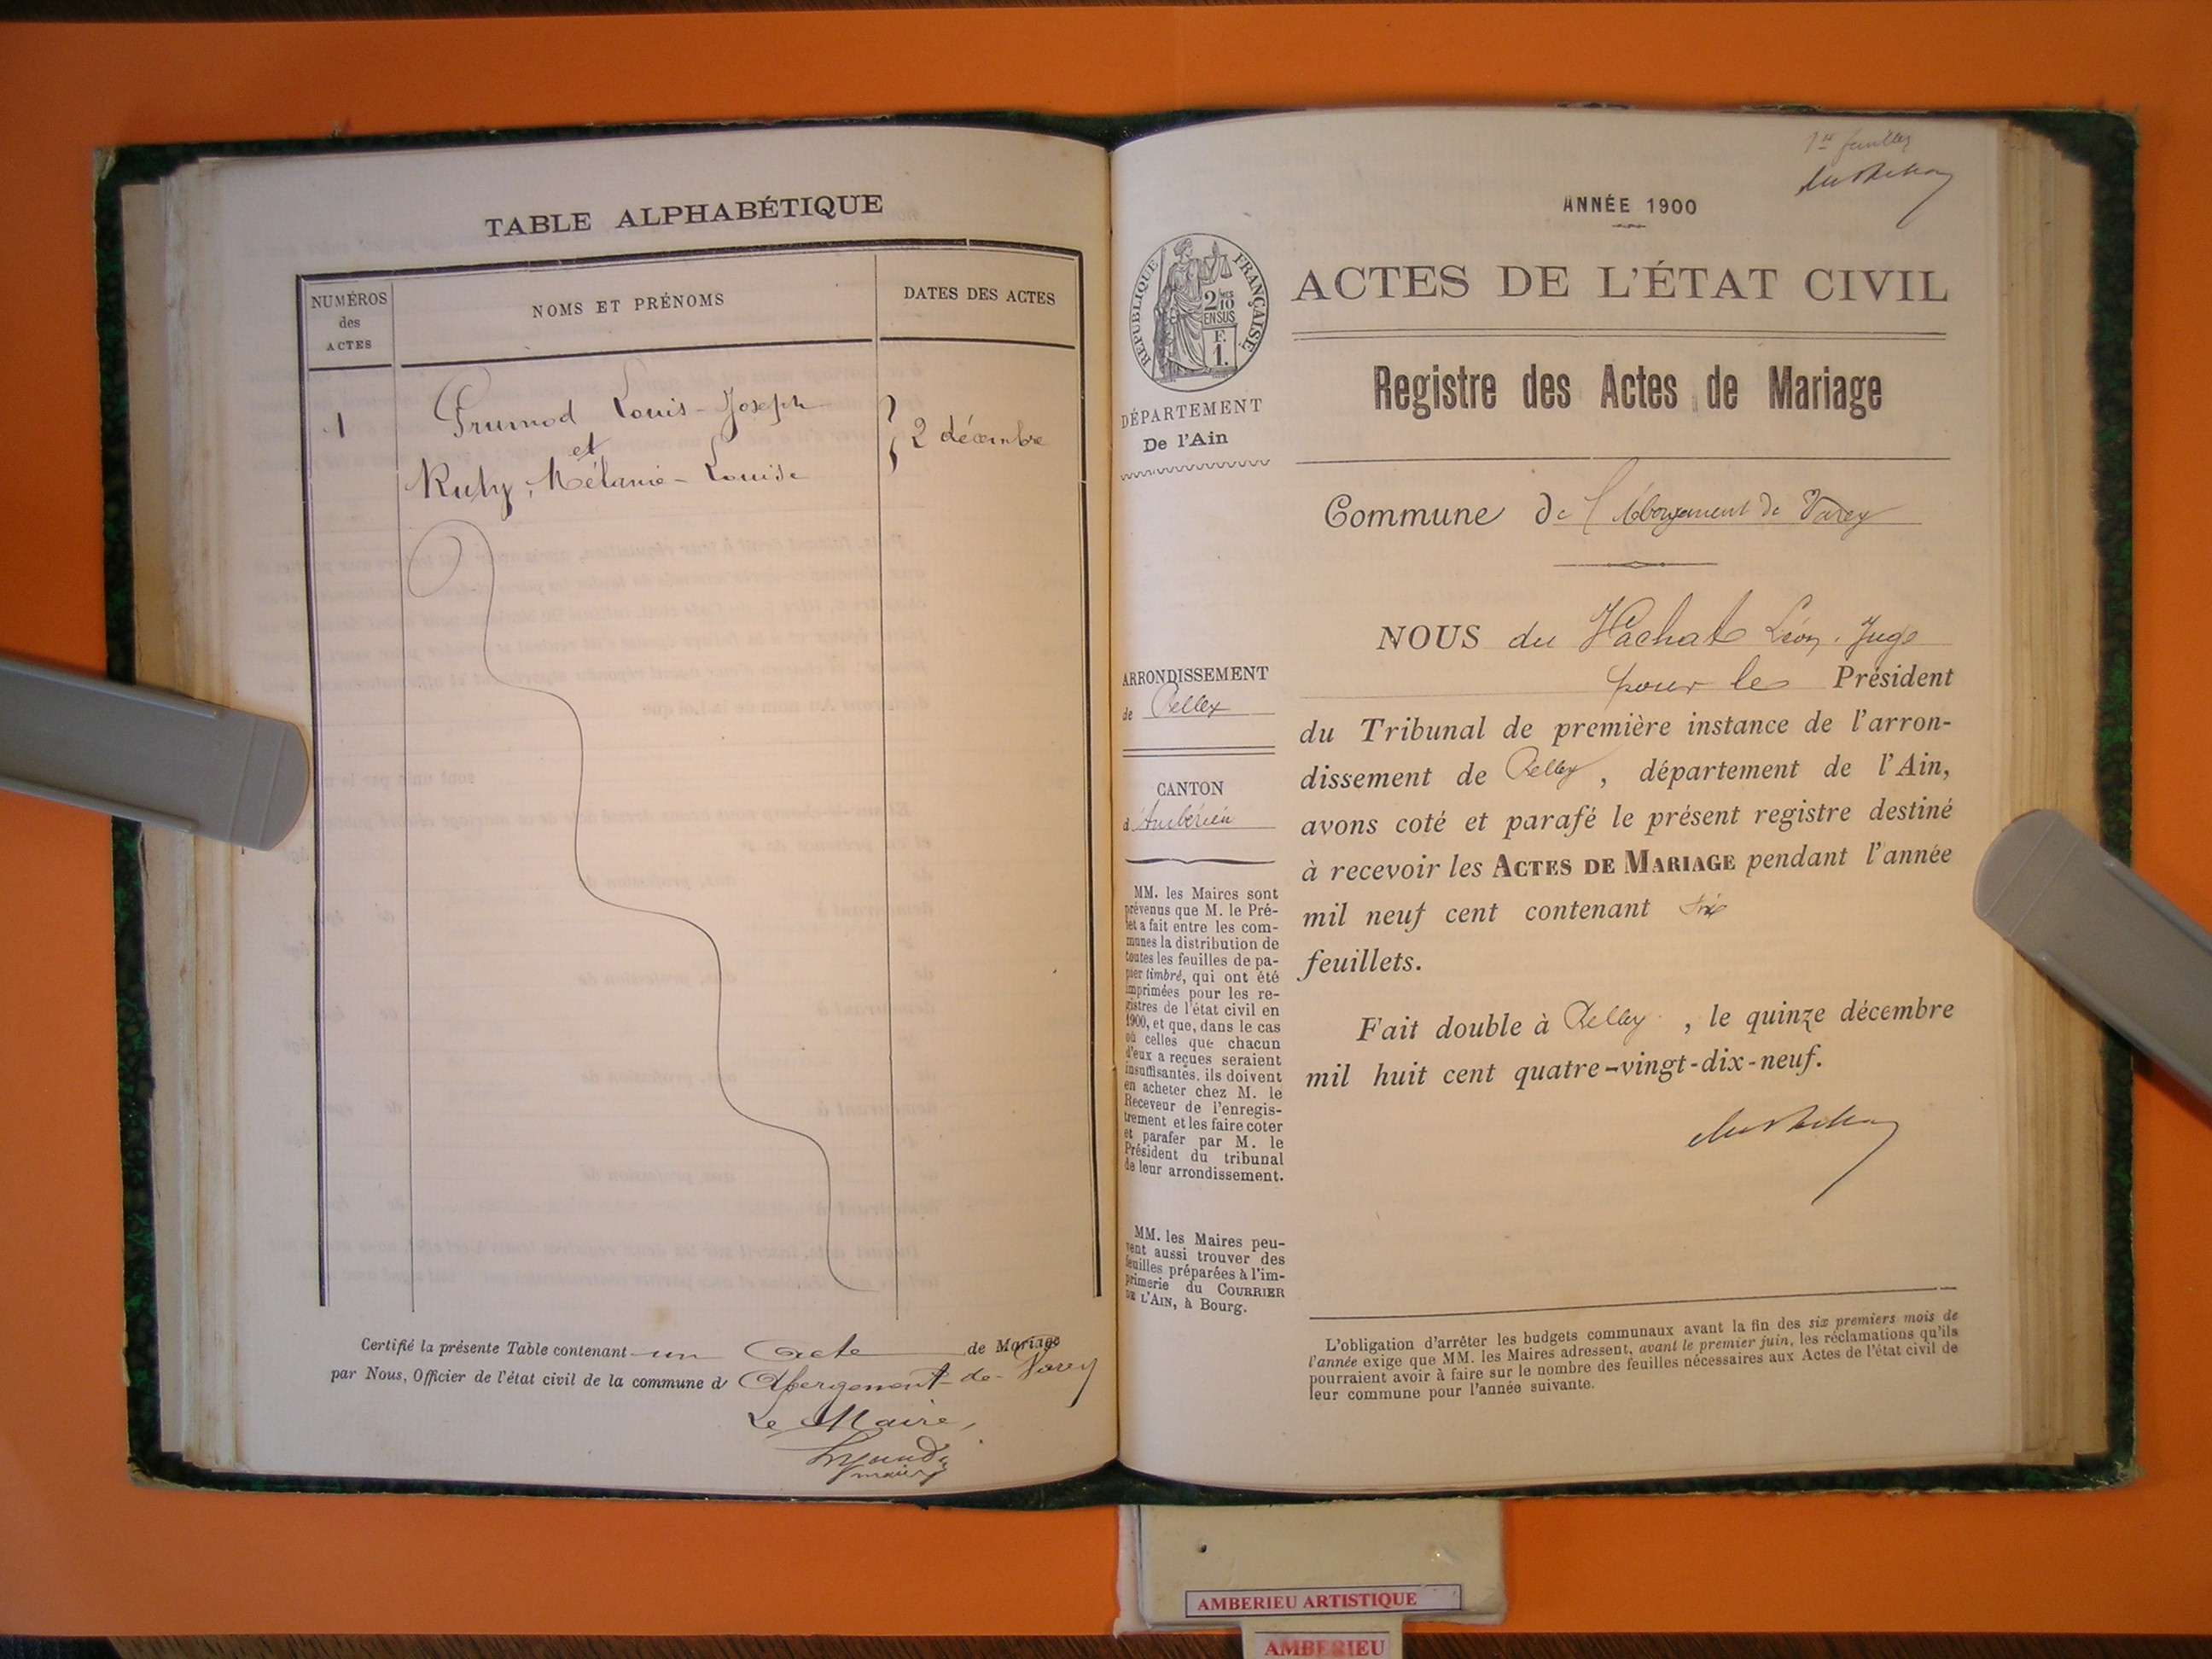 TABLE ALPHABÉTIQUE
NUMÉROS
des
ACTES
NOMS ET PRÉNOMS
DATES DES ACTES
1
Prumod Louis-Joseph
et
Ruty, Mélanie-Louise
2 décembre
Certifié la présente Table contenant un acte de Mariage
par Nous, Officier de l'état civil de la commune d' Abergement-de-Varey
Le Maire,
maire
1er feuillet
ANNÉE 1900
RÉPUBLIQUE FRANÇAISE
2/10
EN SUS
F.
1.
ACTES DE L'ÉTAT CIVIL
Registre des Actes de Mariage
DÉPARTEMENT
De l'Ain
Commune de l'Abergement de Varey
NOUS du Vachat Léon, Juge
pour le Président
du Tribunal de première instance de l'arron-
dissement de Belley, département de l'Ain,
avons coté et parafé le présent registre destiné
à recevoir les ACTES DE MARIAGE pendant l'année
mil neuf cent contenant six
feuillets.
Fait double à Belley, le quinze décembre
mil huit cent quatre-vingt-dix-neuf.
ARRONDISSEMENT
de Belley
CANTON
d'Ambérieu
MM. les Maires sont
prévenus que M. le Pré-
fet a fait entre les com-
munes la distribution de
toutes les feuilles de pa-
pier timbré, qui ont été
imprimées pour les re-
gistres de l'état civil en
1900, et que, dans le cas
où celles que chacun
d'eux a reçues seraient
insuffisantes, ils doivent
en acheter chez M. le
Receveur de l'enregis-
trement et les faire coter
et parafer par M. le
Président du tribunal
de leur arrondissement.
MM. les Maires peu-
vent aussi trouver des
feuilles préparées à l'im-
primerie du COURRIER
DE L'AIN, à Bourg.
L'obligation d'arrêter les budgets communaux avant la fin des six premiers mois de
l'année exige que MM. les Maires adressent, avant le premier juin, les réclamations qu'ils
pourraient avoir à faire sur le nombre des feuilles nécessaires aux Actes de l'état civil de
leur commune pour l'année suivante.
AMBERIEU ARTISTIQUE
AMBERIEU